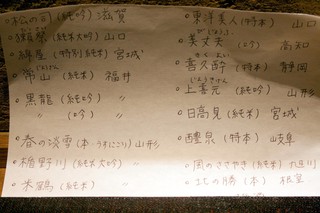 ○松の司 (純吟) 滋賀
(純米大吟) 山口
(特別純米) 宮城
○常山 (純米) 福井
○黒龍 (純吟) 〃
〃 (吟) 〃
○春の淡雪 (本・うすにごり) 山形
○楯野川 (純米大吟) 〃
(純米) 〃
○東洋美人 (特本) 山口
○美丈夫 (吟) 高知
○喜久酔 (特本) 静岡
○上喜元 (純吟) 山形
○日高見 (純吟) 宮城
○醴泉 (特本) 岐阜
○風のささやき (純米)
○北の勝 (本) 根室